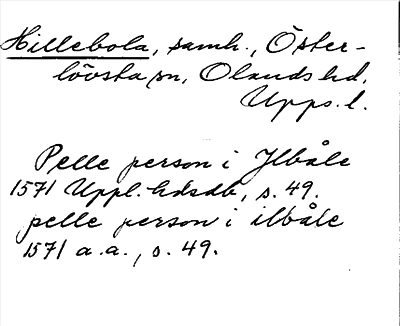 Hillebola, samh., Öster-
lövsta sn, Olands hd,
Upps. l.
Pelle person i Ylbåle
1571 Uppl. hdsdb, s. 49.
pelle person i ilbåle
1571 a.a., s. 49.